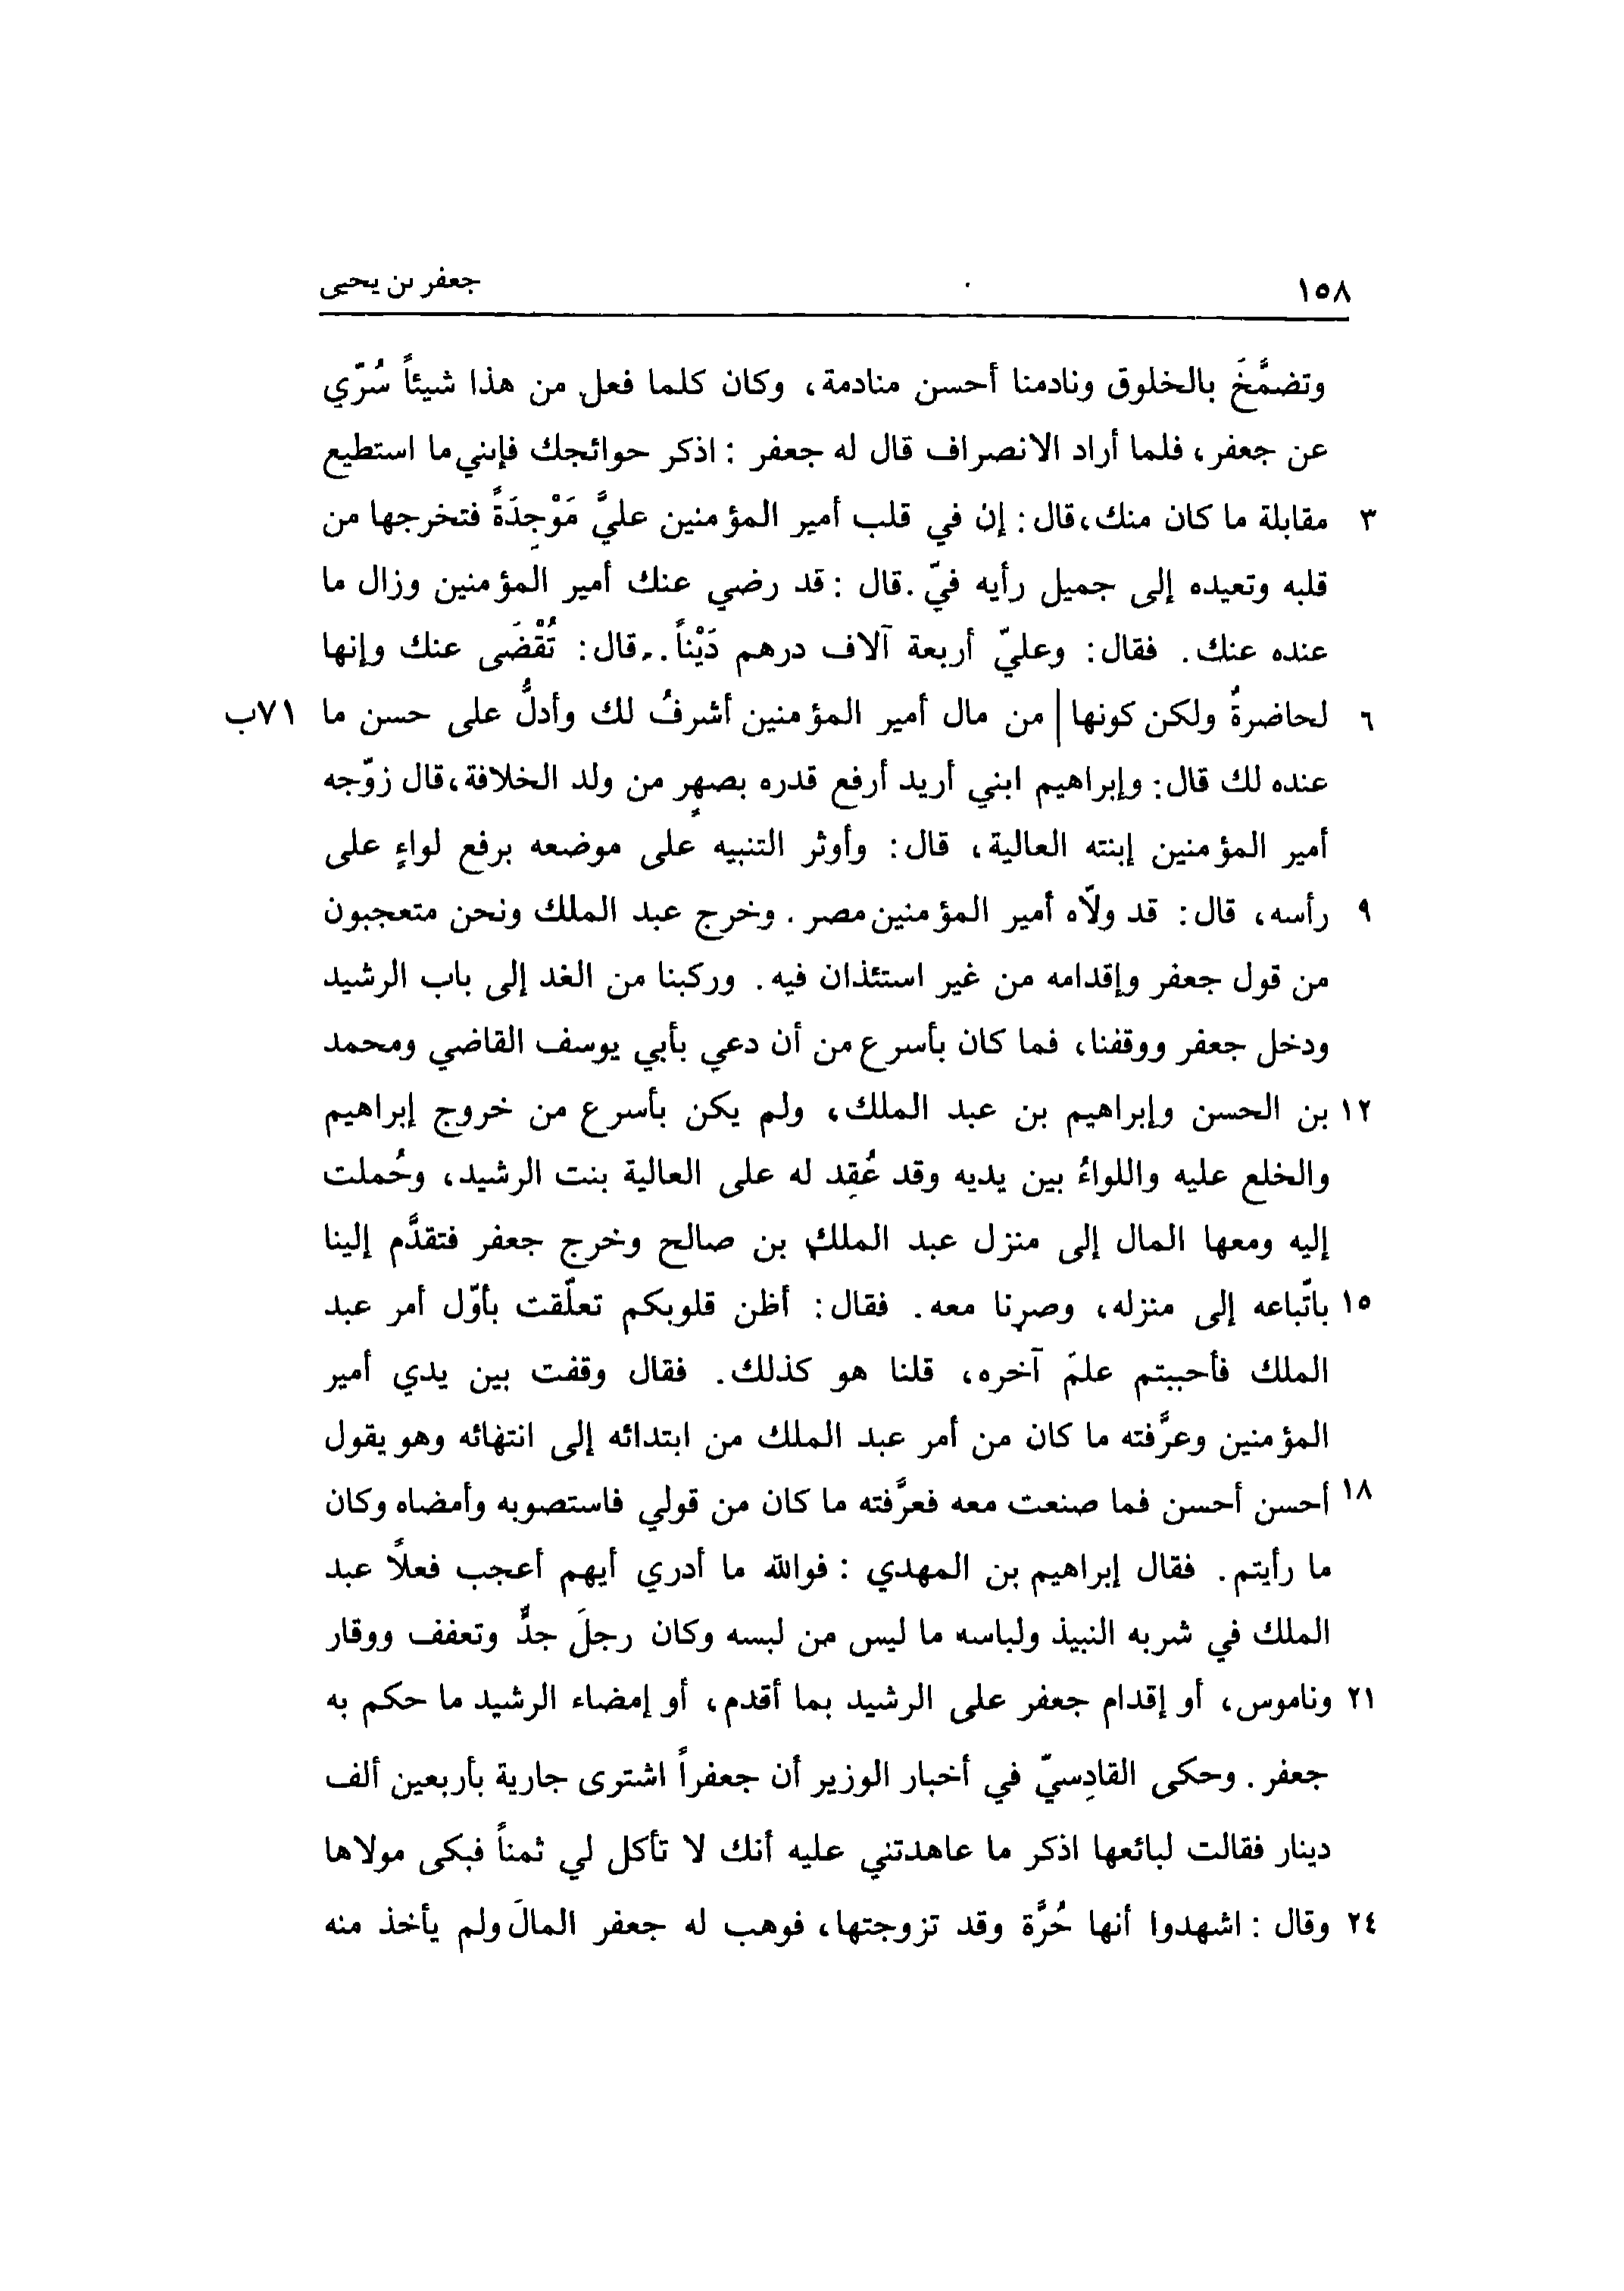 ١٥٨ جعفر بن يحيى
وتضمَّخَ بالخلوق ونادمنا أحسن منادمة، وكان كلما فعل من هذا شيئاً سُرّي
عن جعفر، فلما أراد الانصراف قال له جعفر : اذكر حوائجك فإنني ما استطيع
٣ مقابلة ما كان منك، قال : إن في قلب أمير المؤمنين عليَّ مَوْجِدَةً فتخرجها من
قلبه وتعيده إلى جميل رأيه فيّ . قال : قد رضي عنك أمير المؤمنين وزال ما
عنده عنك . فقال : وعليّ أربعة آلاف درهم دَيْناً . . قال : تُقْضَى عنك وإنها
٦ لحاضرةٌ ولكن كونها | من مال أمير المؤمنين أشرفُ لك وأدلُّ على حسن ما ٧١ب
عنده لك قال : وإبراهيم ابني أريد أرفع قدره بصهرٍ من ولد الخلافة، قال زوّجه
أمير المؤمنين إبنته العالية، قال : وأوثر التنبيه على موضعه برفع لواءٍ على
٩ رأسه، قال : قد ولّاه أمير المؤمنين مصر . وخرج عبد الملك ونحن متعجبون
من قول جعفر وإقدامه من غير استئذان فيه . وركبنا من الغد إلى باب الرشيد
ودخل جعفر ووقفنا، فما كان بأسرع من أن دعي بأبي يوسف القاضي ومحمد
١٢ بن الحسن وإبراهيم بن عبد الملك، ولم يكن بأسرع من خروج إبراهيم
والخلع عليه واللواءُ بين يديه وقد عُقِد له على العالية بنت الرشيد، وحُملت
إليه ومعها المال إلى منزل عبد الملك بن صالح وخرج جعفر فتقدَّم إلينا
١٥ باتّباعه إلى منزله، وصرنا معه . فقال : أظن قلوبكم تعلّقت بأوّل أمر عبد
الملك فأحببتم علمَ آخره، قلنا هو كذلك . فقال وقفت بين يدي أمير
المؤمنين وعرَّفته ما كان من أمر عبد الملك من ابتدائه إلى انتهائه وهو يقول
١٨ أحسن أحسن فما صنعت معه فعرَّفته ما كان من قولي فاستصوبه وأمضاه وكان
ما رأيتم . فقال إبراهيم بن المهدي : فوالله ما أدري أيهم أعجب فعلاً عبد
الملك في شربه النبيذ ولباسه ما ليس من لبسه وكان رجلَ جدٍّ وتعفف ووقار
٢١ وناموس، أو إقدام جعفر على الرشيد بما أقدم، أو إمضاء الرشيد ما حكم به
جعفر . وحكى القادِسيّ في أخبار الوزير أن جعفراً اشترى جارية بأربعين ألف
دينار فقالت لبائعها اذكر ما عاهدتني عليه أنك لا تأكل لي ثمناً فبكى مولاها
٢٤ وقال : اشهدوا أنها حُرَّة وقد تزوجتها، فوهب له جعفر المالَ ولم يأخذ منه